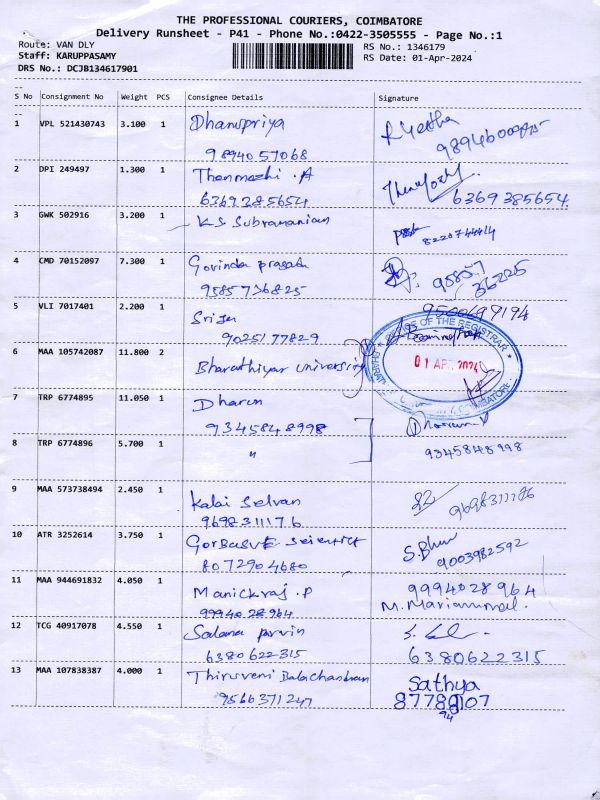 THE PROFESSIONAL COURIERS, COIMBATORE
Delivery Runsheet - P41 - Phone No.:0422-3505555 - Page No.:1
Route: VAN DLY
RS No.: 1346179
Staff: KARUPPASAMY
RS Date: 01-Apr-2024
DRS No.: DCJB134617901
S No Consignment No Weight PCS Consignee Details Signature
1 VPL 521430743 3.100 1 Dhanupriya
9894057068
2 DPI 249497 1.300 1 Thenmozhi .A
6369385654 6369385654
3 GWK 502916 3.200 1 K.S Subramanian 8220744414
4 CMD 70152097 7.300 1 Govinda prasath 95857
9585736825 36825
5 VLI 7017401 2.200 1 9566697194
9025177829
6 MAA 105742087 11.800 2 Bharathiyar university
OF THE REGISTRAR
01 APR 2024
COIMBATORE
7 TRP 6774895 11.050 1 Dharun Dharun
9345848998 9345848998
8 TRP 6774896 5.700 1 "
9 MAA 573738494 2.450 1 Kalai Selvan 9698311176
9698311176
10 ATR 3252614 3.750 1 Scientist S.Bhuv
8072904680 9003982592
11 MAA 944691832 4.050 1 Manickraj .P 9994028964
9994028964 M.Mariammal.
12 TCG 40917078 4.550 1 Salana parvin
6380622315 6380622315
13 MAA 107838387 4.000 1 Thiruveni Balachandran Sathya
9566371247
74